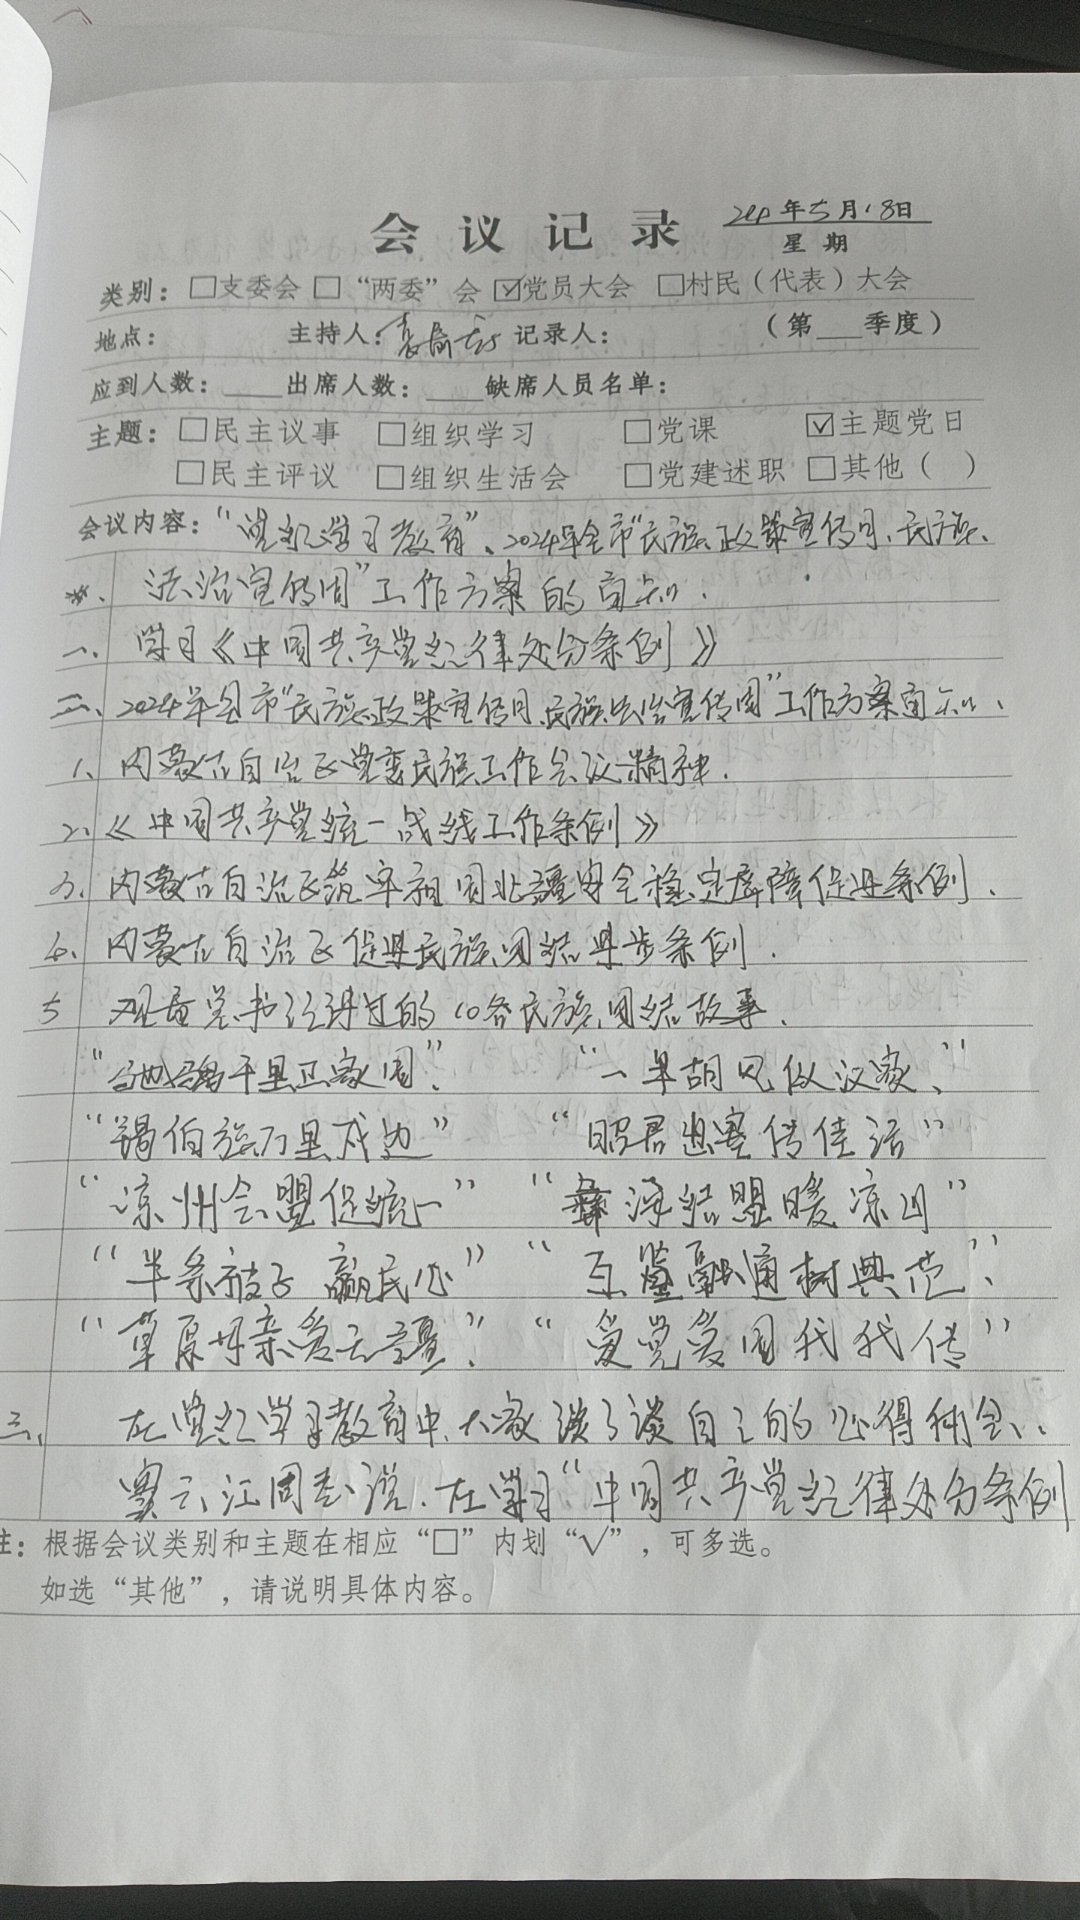 会议记录 年5月18日
星期
类别：□支委会 □“两委”会 ☑党员大会 □村民（代表）大会
地点： 主持人： 记录人： （第___季度）
应到人数：____出席人数：____缺席人员名单：
主题：□民主议事 □组织学习 □党课 ☑主题党日
□民主评议 □组织生活会 □党建述职 □其他（ ）
会议内容：“党纪学习教育”、2024年全市“民族政策宣传月、民族
法治宣传周”工作方案的通知.
一、学习《中国共产党纪律处分条例》
二、2024年全市“民族政策宣传月、民族法治宣传周”工作方案通知、
1、内蒙古自治区党委民族工作会议精神.
2、《中国共产党统一战线工作条例》
3、内蒙古自治区筑牢祖国北疆安全稳定屏障促进条例.
4、内蒙古自治区促进民族团结进步条例.
5 观看总书记讲过的10各民族团结故事.
“千里卫家国” “一半胡风似汉家”
“锡伯族万里戍边” “昭君出塞传佳话”
“凉州会盟促统一” “彝海结盟暖凉山”
“半条被子 赢民心” “互鉴融通树典范”
“草原母亲爱无疆” “爱党爱国代代传”
三、在党纪学习教育中,大家谈了谈自己的心得体会、
说.在学习“中国共产党纪律处分条例
注：根据会议类别和主题在相应“□”内划“√”，可多选。
如选“其他”，请说明具体内容。